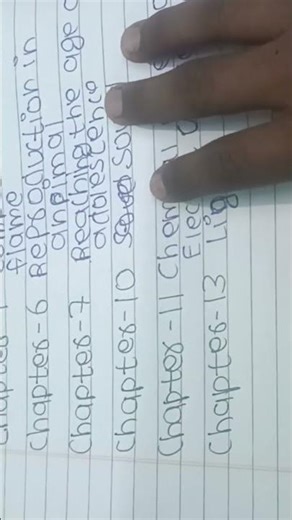 flame
Chapter-6 Reproduction in
animal
Chapter-7 Reaching the age
adolescence
Chapter-10 Sou
Chapter-11 Chem
Elec
Chapter-13 Lig